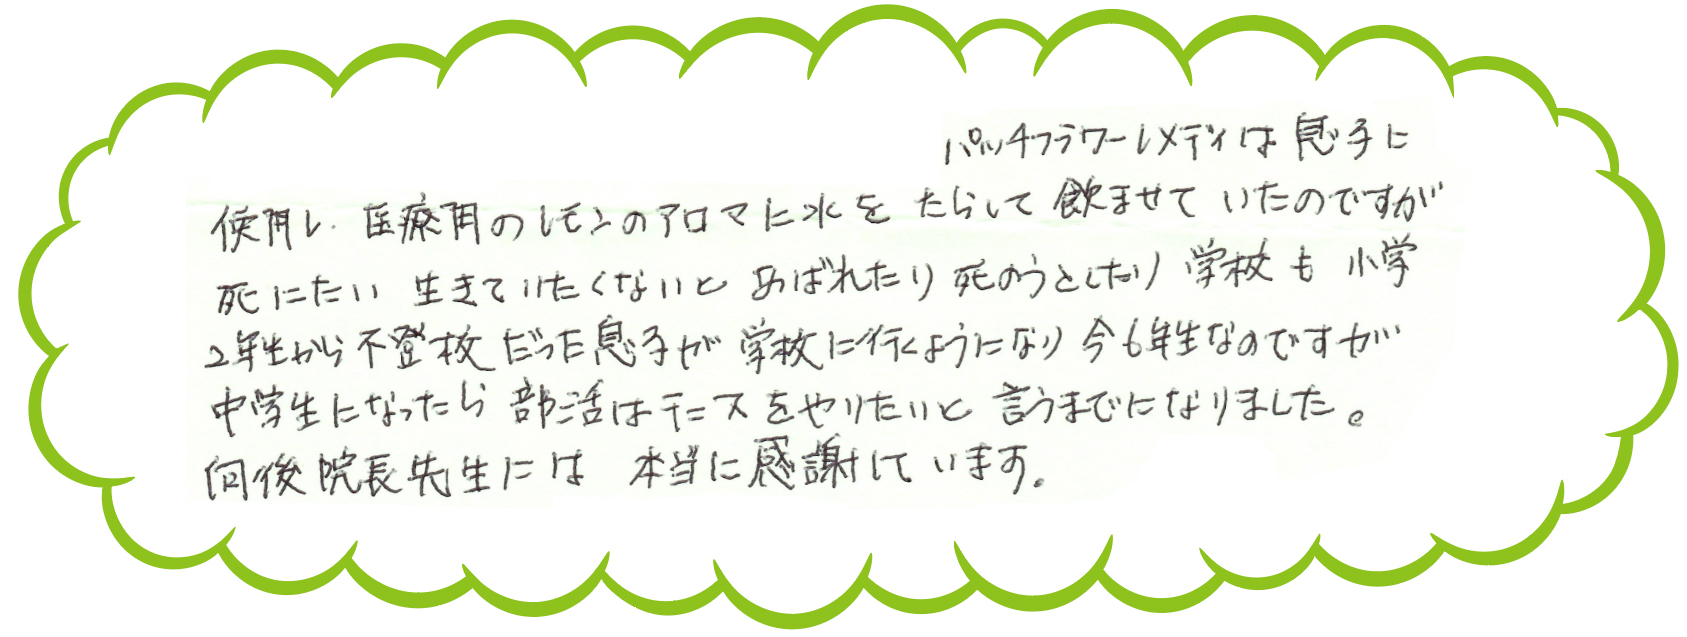 バッチフラワーレメディは息子に
使用し、医療用のレモンのアロマに水をたらして飲ませていたのですが
死にたい 生きていたくないと あばれたり 死のうとしたり 学校も 小学
2年生から不登校だった息子が 学校に行くようになり 今6年生なのですが
中学生になったら 部活はテニスをやりたいと 言うまでになりました。
向後院長先生には 本当に感謝しています。